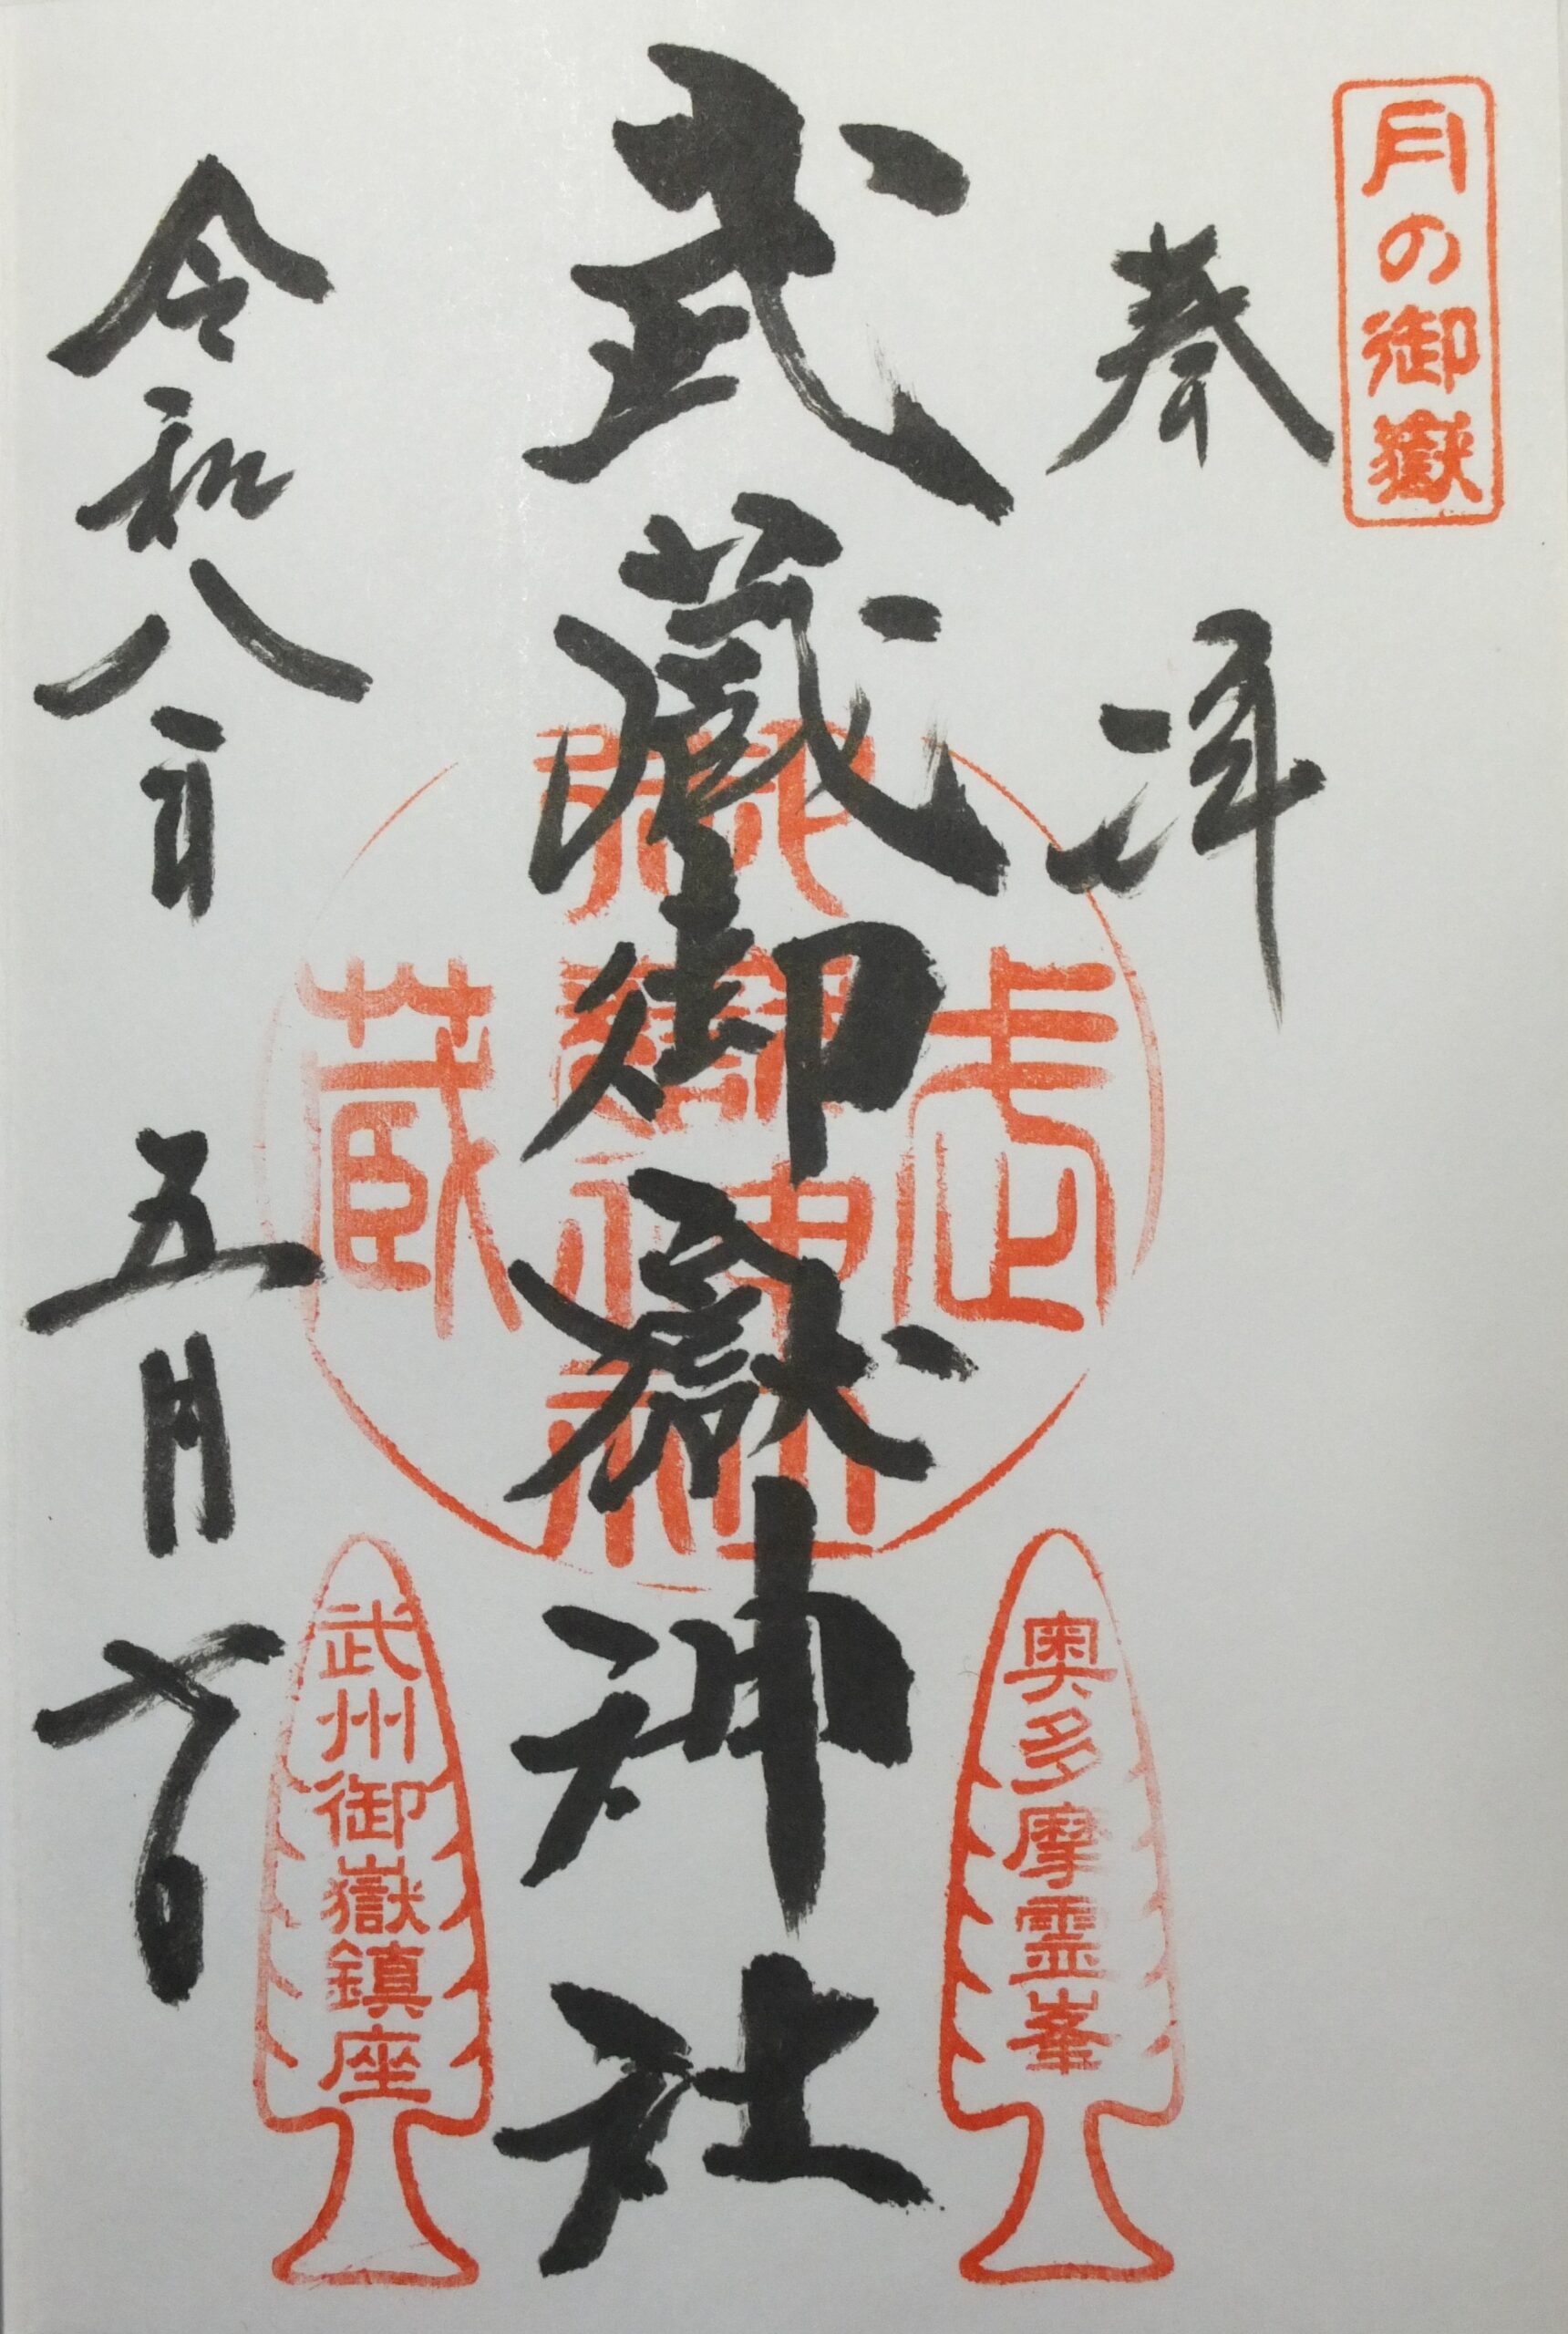 月の御嶽
奉拝
武蔵御嶽神社
令和八年五月七日
武蔵御嶽神社
奥多摩霊峯
武州御嶽鎮座